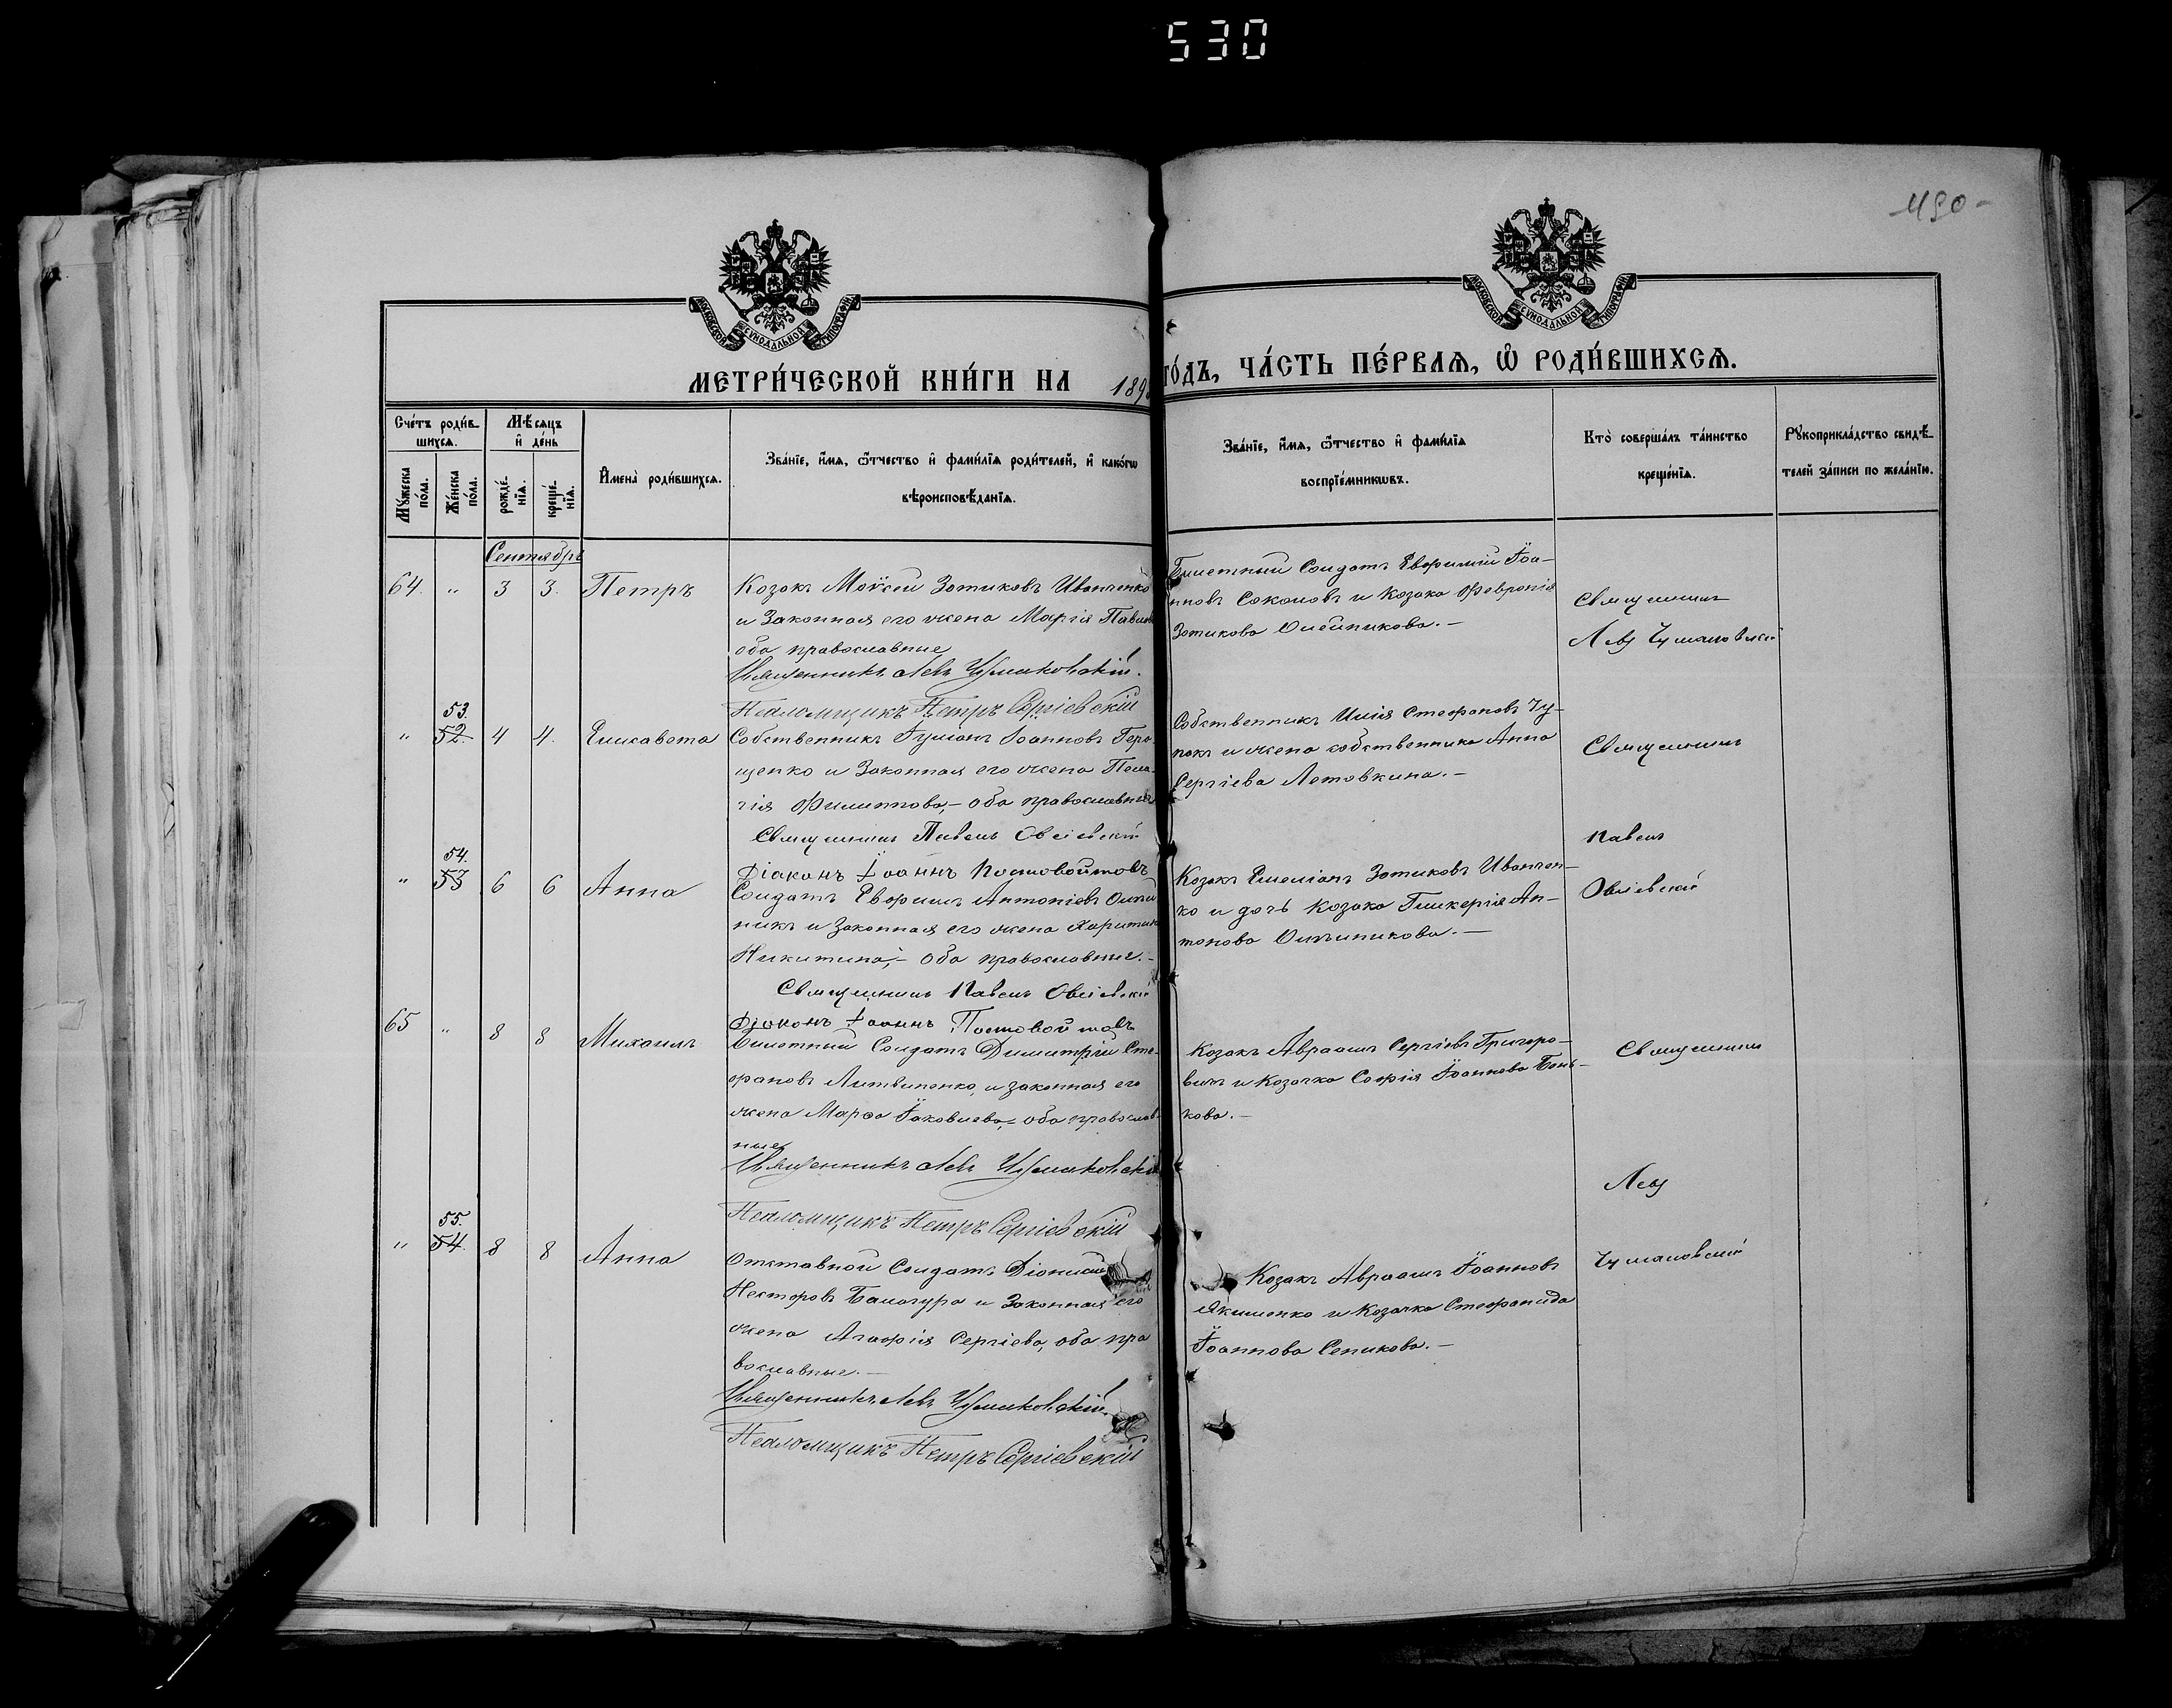 530
490-
МОСКОВСКОЙ СѴНОДАЛЬНОЙ ТИПОГРАФІИ
МОСКОВСКОЙ СѴНОДАЛЬНОЙ ТИПОГРАФІИ
МЕТРИ́ЧЕСКОЙ КНИ́ГИ НА 189
ГО́ДЪ, ЧА́СТЬ ПЕ́РВАЯ, Ѡ РОДИ́ВШИХСЯ.
Сче́тъ роди́в-
шихся.
Мѣ́сяцъ
и де́нь
Мꙋжеска
по́ла.
Же́нска
по́ла.
рожде́-
нїя.
креще́-
нїя.
Имена̀ роди́вшихся.
Зва́нїе, и́мя, ѻ҆́тчество и҆ фами́лїя роди́телей, и҆ како́гѡ
вѣроисповѣ́данїя.
Зва́нїе, и́мя, ѻ҆́тчество и҆ фами́лїя
воспрїе́мникѡвъ.
Кто̀ соверша́лъ та́инство
креще́нїя.
Рꙋкоприкла́дство свидѣ́-
телей за́писи по жела́нїю.
Сентябрь
64. " 3 3. Петръ
Козакъ Моѵсей Зотиковъ Иванченко
и Законная его жена Марія Павлова
оба православные
Священникъ Левъ Чумаковскій.
Псаломщикъ Петръ Сергіевскій
Билетный Солдатъ Евфимій Іоа-
нновъ Соколовъ и Козака Февронія
Зотикова Олейникова.-
Священникъ
Левъ Чумаковскій
53.
" 52. 4 4. Елисавета
Собственникъ Іуліанъ Іоанновъ Гера-
щенко и Законная его жена Пела-
гія Филиппова,- оба православные
Священникъ Павелъ Овсіевскій
Діаконъ Іоаннъ Постовойтовъ
Собственникъ Илія Стефановъ Чу-
пакъ и жена собственника Анна
Сергіева Летовкина.-
Священникъ
Павелъ
Овсіевскій
54.
" 53 6 6 Анна
Солдатъ Евфимъ Антоніевъ Олей
никъ и Законная его жена Харитина
Никитина,- оба православные.-
Священникъ Павелъ Овсіевскій
Діаконъ Іоаннъ Постовойтовъ
Козакъ Емеліанъ Зотиковъ Иванчен-
ко и дочь Козака Гликерія Ан-
тонова Олейникова.-
65 " 8 8 Михаилъ
Билетный Солдатъ Димитрій Сте-
фановъ Литвиненко, и законная его
жена Марѳа Іаковлева,- оба православ-
ные
Священникъ Левъ Чумаковскій
Псаломщикъ Петръ Сергіевскій
Козакъ Авраамъ Сергіевъ Григоро-
вичъ и Козачка Софія Іоаннова Бонь-
кова.-
Священникъ
Левъ
Чумаковскій
55.
" 54. 8 8 Анна
Отставной Солдатъ Діонисій
Несторовъ Балагура и Законная его
жена Агафія Сергіева, оба пра
вославные.-
Священникъ Левъ Чумаковскій.
Псаломщикъ Петръ Сергіевскій
Козакъ Авраамъ Іоанновъ
Якименко и Козачка Стефанида
Іоаннова Сепикова.-